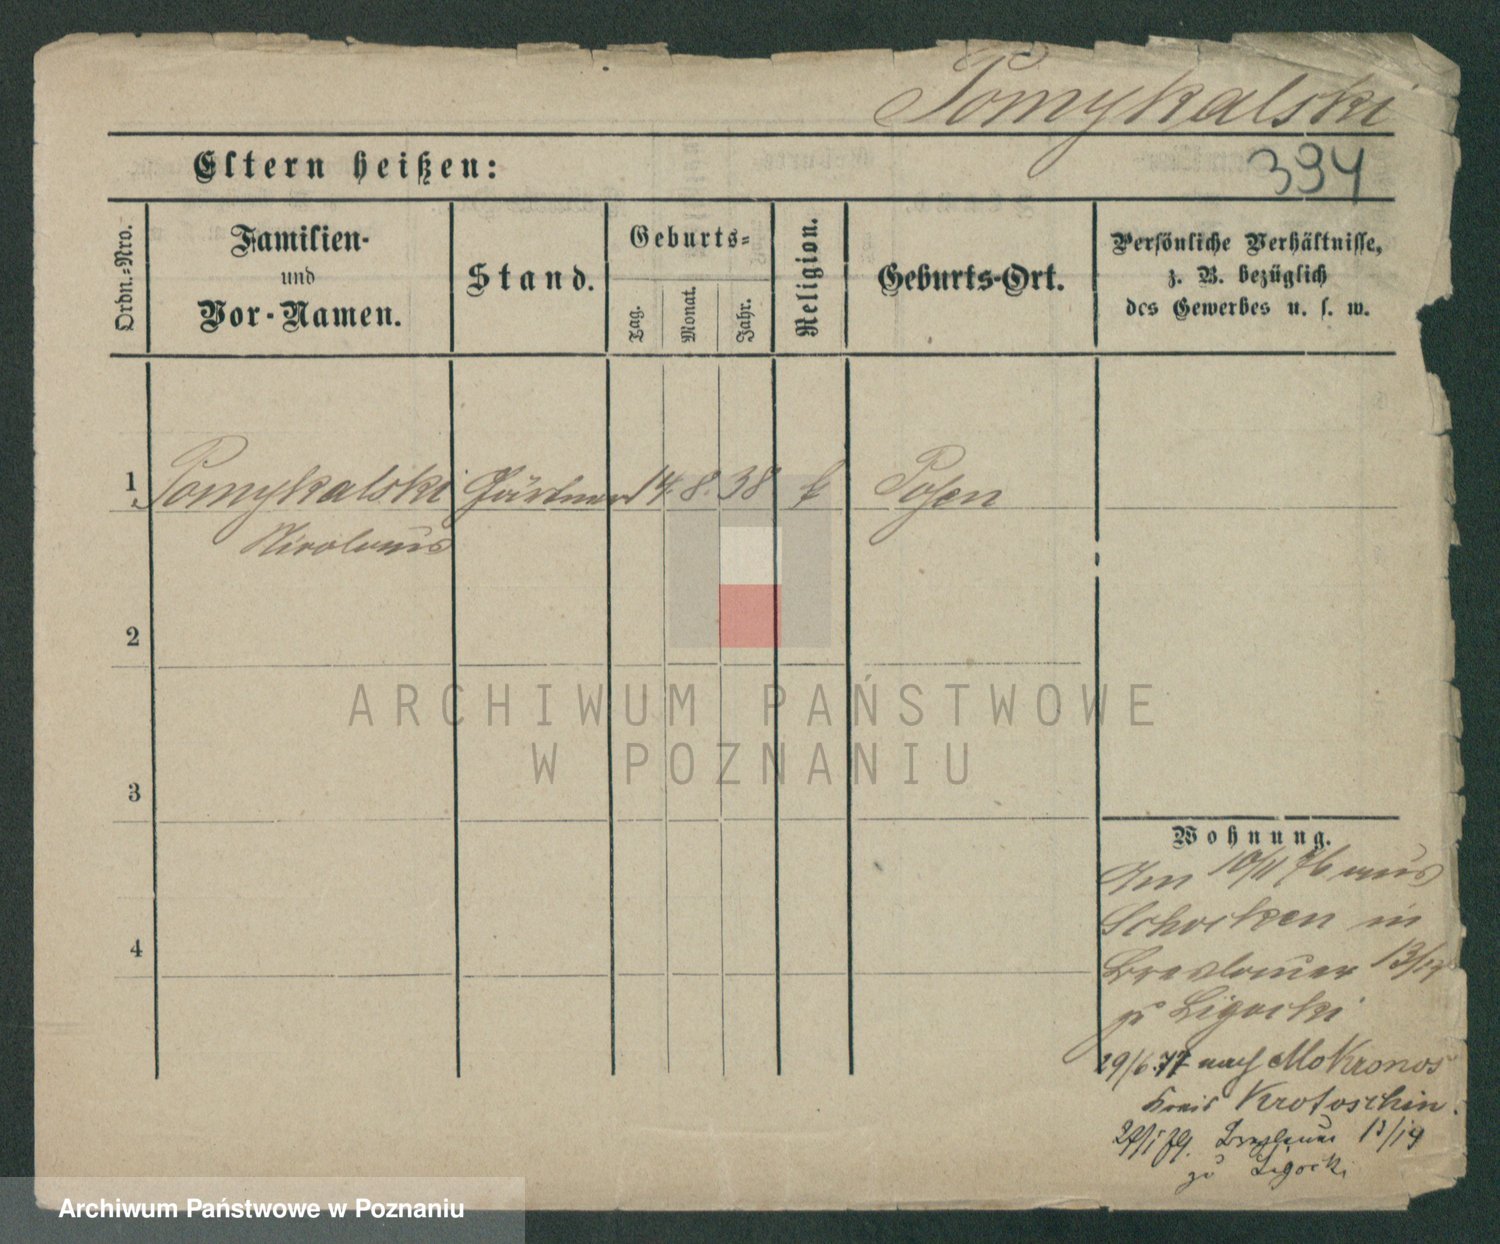 Pomykalski
394
Eltern heißen:
Ordn.-Nro.
Familien-
und
Vor-Namen.
Stand.
Geburts-
Tag.
Monat.
Jahr.
Religion.
Geburts-Ort.
Persönliche Verhältnisse,
z. B. bezüglich
des Gewerbes u. s. w.
1 Pomykalski Gärtner 14. 8. 38 k Posen
Nicolaus
2
3
4
Wohnung.
Am 10/11 76 aus
Schocken in
Breslauer 13/14
zu Ligocki
29/6.77 nach Mokronos
Kreis Krotoschin.
Breslauer 13/19
zu Ligocki
ARCHIWUM PAŃSTWOWE
W POZNANIU
Archiwum Państwowe w Poznaniu